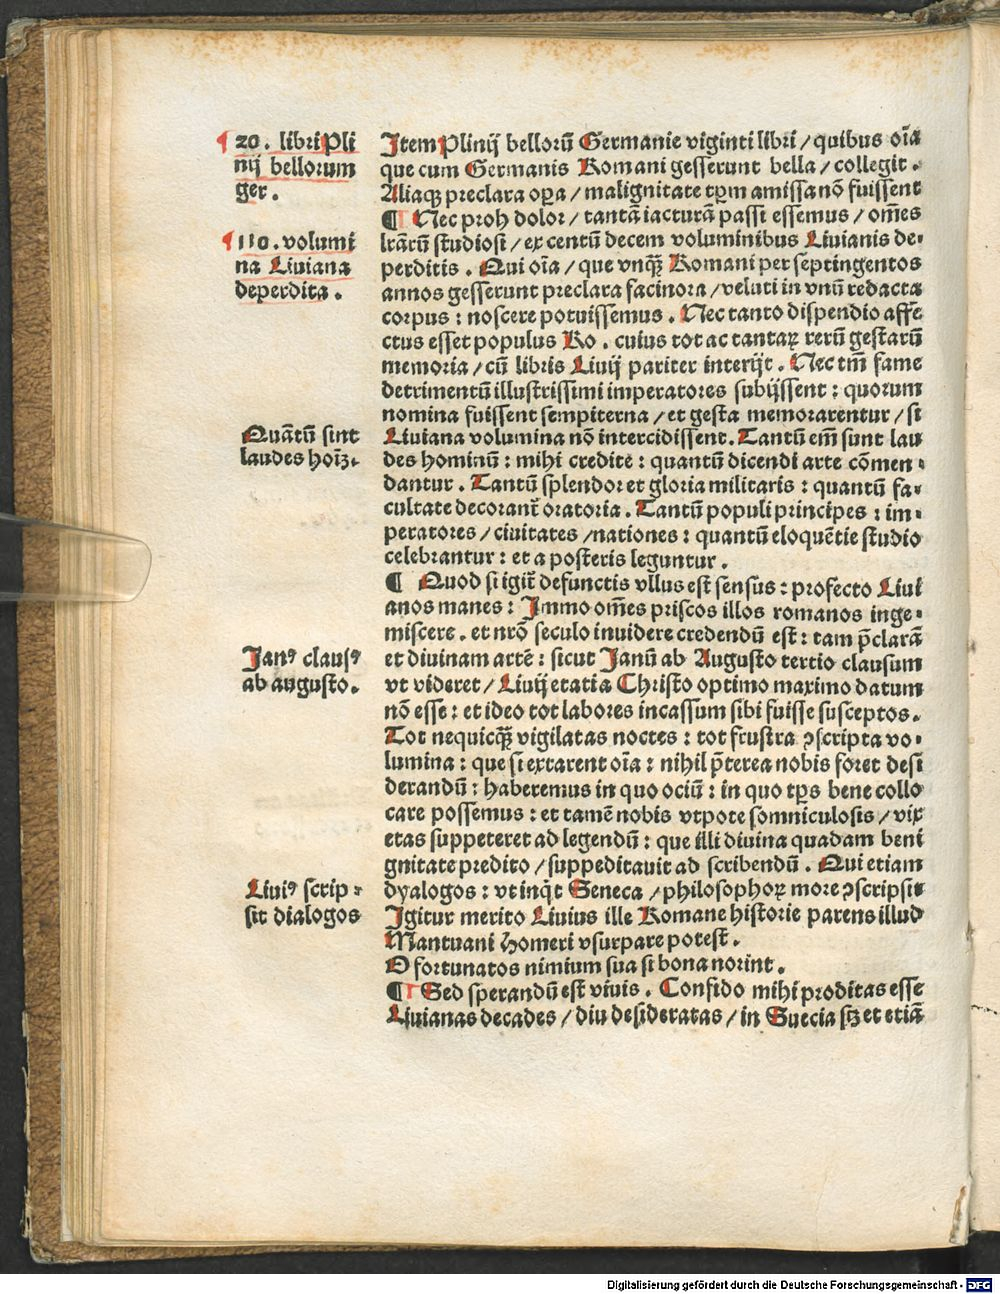 ¶ 20. libri Pli
nij bellorum
ger.
¶ 110. volumi
na Liuiana
deperdita.
Quātū sint
laudes hoīꝫ.
Janꝰ clausꝰ
ab augusto.
Liuiꝰ scrip-
sit dialogos
Item Plinij bellorū Germanie viginti libri / quibus oīa
que cum Germanis Romani gesserunt bella / collegit.
Aliaqꝫ preclara oꝑa / malignitate tꝑm amissa nō fuissent
¶ Nec proh dolor / tantā iacturā passi essemus / oēs
lrārū studiosi / ex centū decem voluminibus Liuianis de-
perditis. Qui oīa / que vnqꝫ̄ Romani per septingentos
annos gesserunt preclara facinora / veluti in vnū redacta
corpus : noscere potuissemus. Nec tanto dispendio affe-
ctus esset populus Ro. cuius tot ac tantaꝝ rerū gestarū
memoria / cū libris Liuij pariter interijt. Nec tm̄ fame
detrimentū illustrissimi imperatores subijssent : quorum
nomina fuissent sempiterna / et gesta memorarentur / si
Liuiana volumina nō intercidissent. Tantū em̄ sunt lau
des hominū : mihi credite : quantū dicendi arte cōmen-
dantur. Tantū splendor et gloria militaris : quantū fa-
cultate decorant̄ oratoria. Tantū populi principes : im-
peratores / ciuitates / nationes : quantū eloquētie studio
celebrantur : et a posteris leguntur.
¶ Quod si igit̄ defunctis vllus est sensus : profecto Liui
anos manes : Immo om̄es priscos illos romanos inge-
miscere. et nrō seculo inuidere credendū est : tam p̄clarā
et diuinam artē : sicut Janū ab Augusto tertio clausum
vt videret / Liuij etati a Christo optimo maximo datum
nō esse : et ideo tot labores incassum sibi fuisse susceptos.
Tot nequicqꝫ̄ vigilatas noctes : tot frustra ꝯscripta vo-
lumina : que si extarent oīa : nihil p̄terea nobis foret desi
derandū : haberemus in quo ociū : in quo tꝑs bene collo
care possemus : et tamē nobis vtpote somniculosis / vix
etas suppeteret ad legendū : que illi diuina quadam beni
gnitate predito / suppeditauit ad scribendū. Qui etiam
dyalogos : vt inqt̄ Seneca / philosophoꝝ more ꝯscripsit
Igitur merito Liuius ille Romane historie parens illud
Mantuani Homeri vsurpare potest.
O fortunatos nimium sua si bona norint.
¶ Sed sperandū est viuis. Confido mihi proditas esse
Liuianas decades / diu desideratas / in Suecia sꝫ et etiā
Digitalisierung gefördert durch die Deutsche Forschungsgemeinschaft - DFG